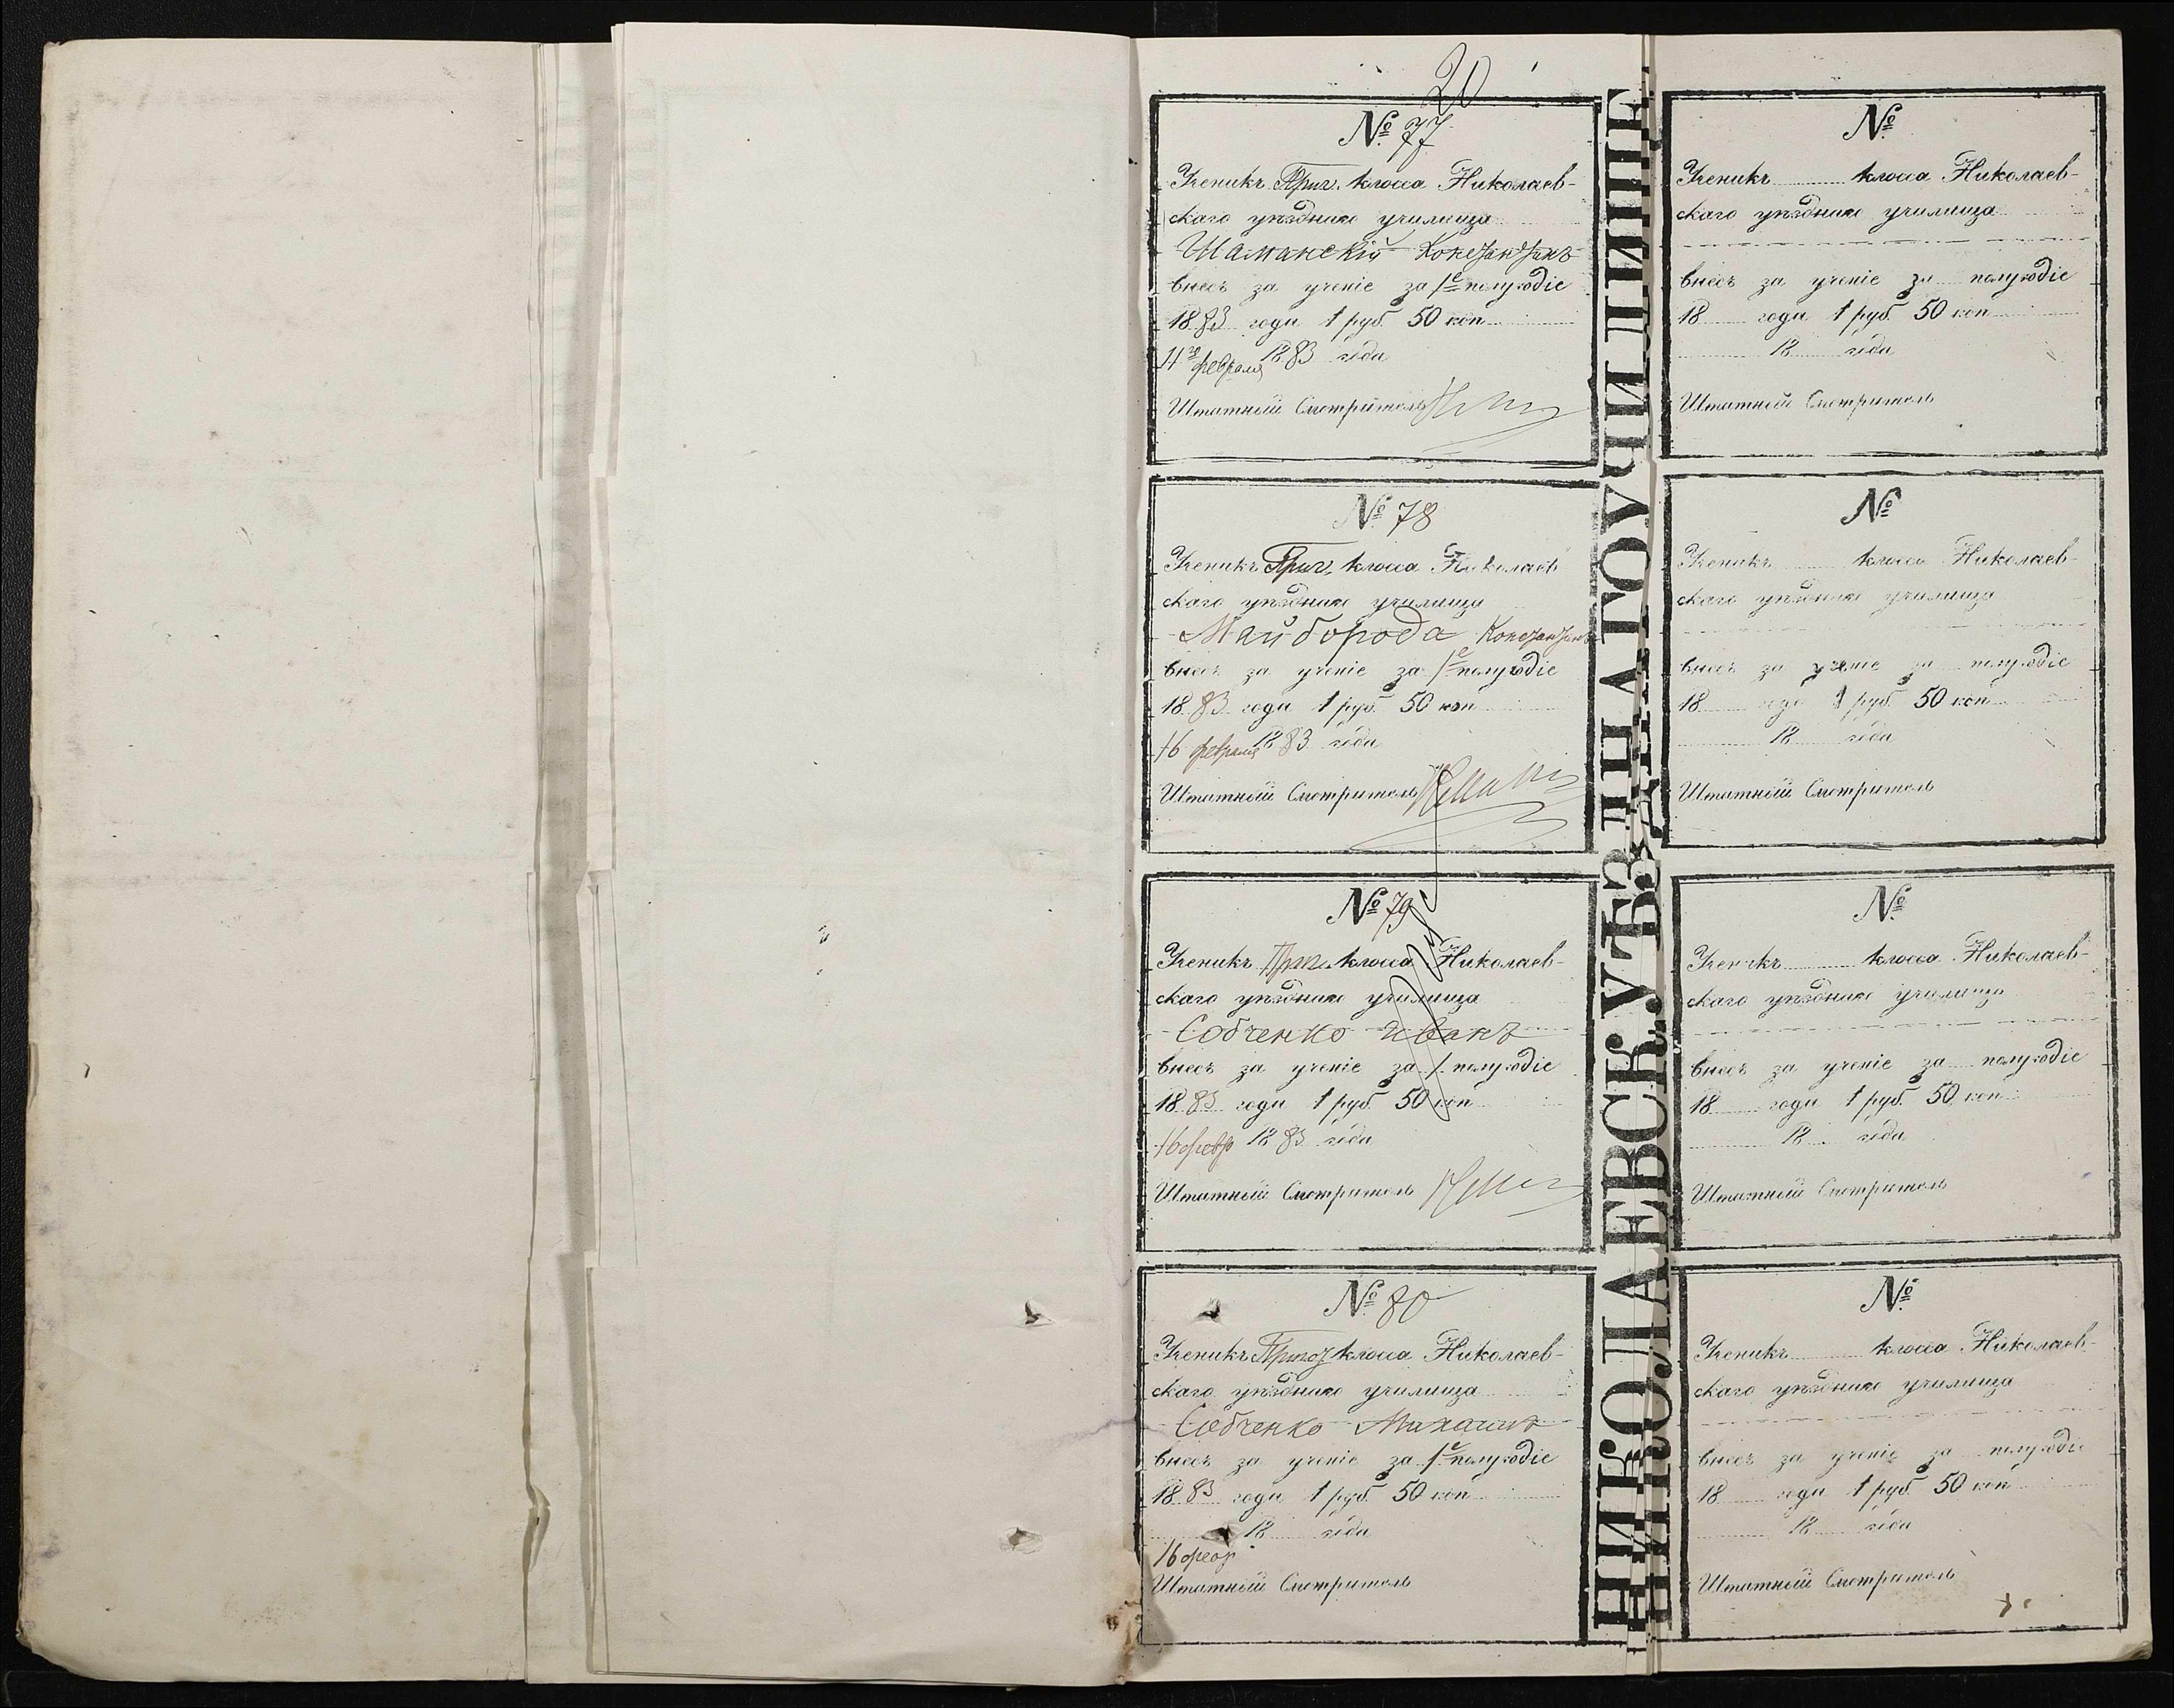 20
№ 77
Ученикъ Приг. класса Николаев-
скаго уѣзднаго училища
Шаманскій Константинъ
внесъ за ученіе за 1е полугодіе
1883 года 1 руб. 50 коп
11го февраля 1883 года
Штатный Смотритель
№ 78
Ученикъ Приг. класса Николаев-
скаго уѣзднаго училища
Майборода Константинъ
внесъ за ученіе за 1е полугодіе
1883 года 1 руб. 50 коп
16 февраля 1883 года
Штатный Смотритель
№ 79
Ученикъ класса Николаев-
скаго уѣзднаго училища
Собченко Иванъ
внесъ за ученіе за 1 полугодіе
1883 года 1 руб. 50 коп
16 февр 1883 года
Штатный Смотритель
№ 80
Ученикъ Пригот класса Николаев-
скаго уѣзднаго училища
Собченко Михаилъ
внесъ за ученіе за 1е полугодіе
1883 года 1 руб. 50 коп
18 года
16 февр
Штатный Смотритель
НИКОЛАЕВСК. УѢЗДНАГО УЧИЛИЩЕ
№
Ученикъ класса Николаев-
скаго уѣзднаго училища
внесъ за ученіе за полугодіе
18 года 1 руб. 50 коп
18 года
Штатный Смотритель
№
Ученикъ класса Николаев-
скаго уѣзднаго училища
внесъ за ученіе за полугодіе
18 года 1 руб. 50 коп
18 года
Штатный Смотритель
№
Ученикъ класса Николаев-
скаго уѣзднаго училища
внесъ за ученіе за полугодіе
18 года 1 руб. 50 коп
18 года
Штатный Смотритель
№
Ученикъ класса Николаев-
скаго уѣзднаго училища
внесъ за ученіе за полугодіе
18 года 1 руб. 50 коп
18 года
Штатный Смотритель